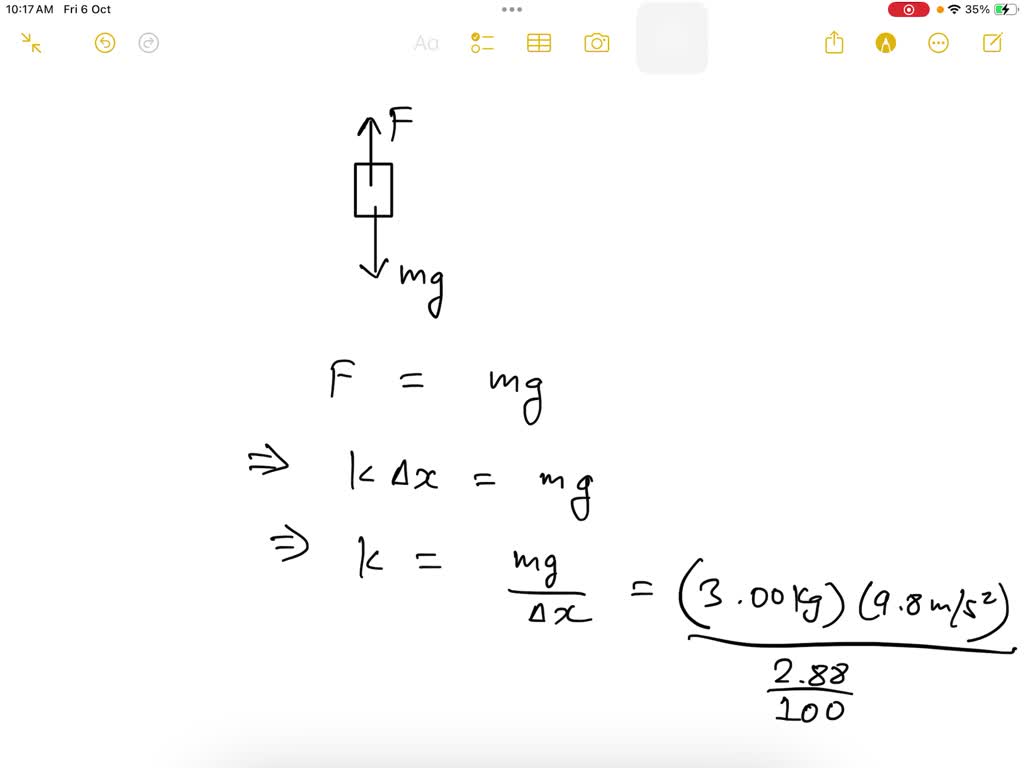 10:17 AM Fri 6 Oct
35%
Aa
F
mg
F = mg
⇒ k Δx = mg
⇒ k = mg/Δx = (3.00 kg) (9.8 m/s²) / (2.88/100)